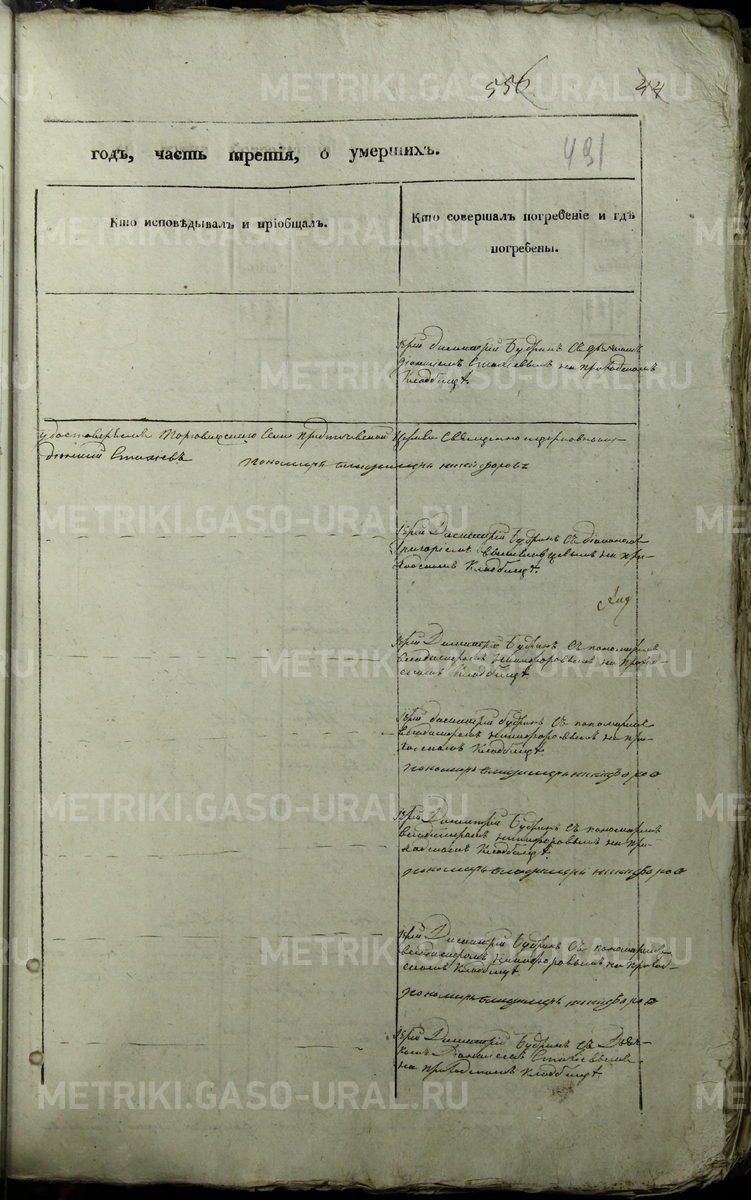 METRIKI.GASO-URAL.RU
556 44
годъ, часть третія, о умершихъ.
491
Кто исповѣдывалъ и пріобщалъ.
Кто совершалъ погребеніе и гдѣ
погребены.
Іерей Димитрій Будринъ съ
на приходскомъ
Кладбищѣ.
Села Предтечевской Церкви
Стахіевъ пономарь Владимиръ Никифоровъ
Іерей Димитрій Будринъ съ діакономъ
Григоріемъ на при-
ходскомъ Кладбищѣ.
Іерей Димитрій Будринъ съ пономаремъ
Владимиромъ Никифоровымъ на прихо-
дскомъ Кладбищѣ
Іерей Димитрій Будринъ съ пономаремъ
Владимиромъ Никифоровымъ на при-
ходскомъ Кладбищѣ.
пономарь Владимиръ Никифоровъ
Іерей Димитрій Будринъ съ пономаремъ
Владимиромъ Никифоровымъ на при-
ходскомъ Кладбищѣ.
пономарь Владимиръ Никифоровъ
Іерей Димитрій Будринъ съ пономаремъ
Владимиромъ Никифоровымъ на приход-
скомъ Кладбищѣ
пономарь Владимиръ Никифоровъ
Іерей Димитрій Будринъ съ
Стахіевымъ
на приходскомъ Кладбищѣ.